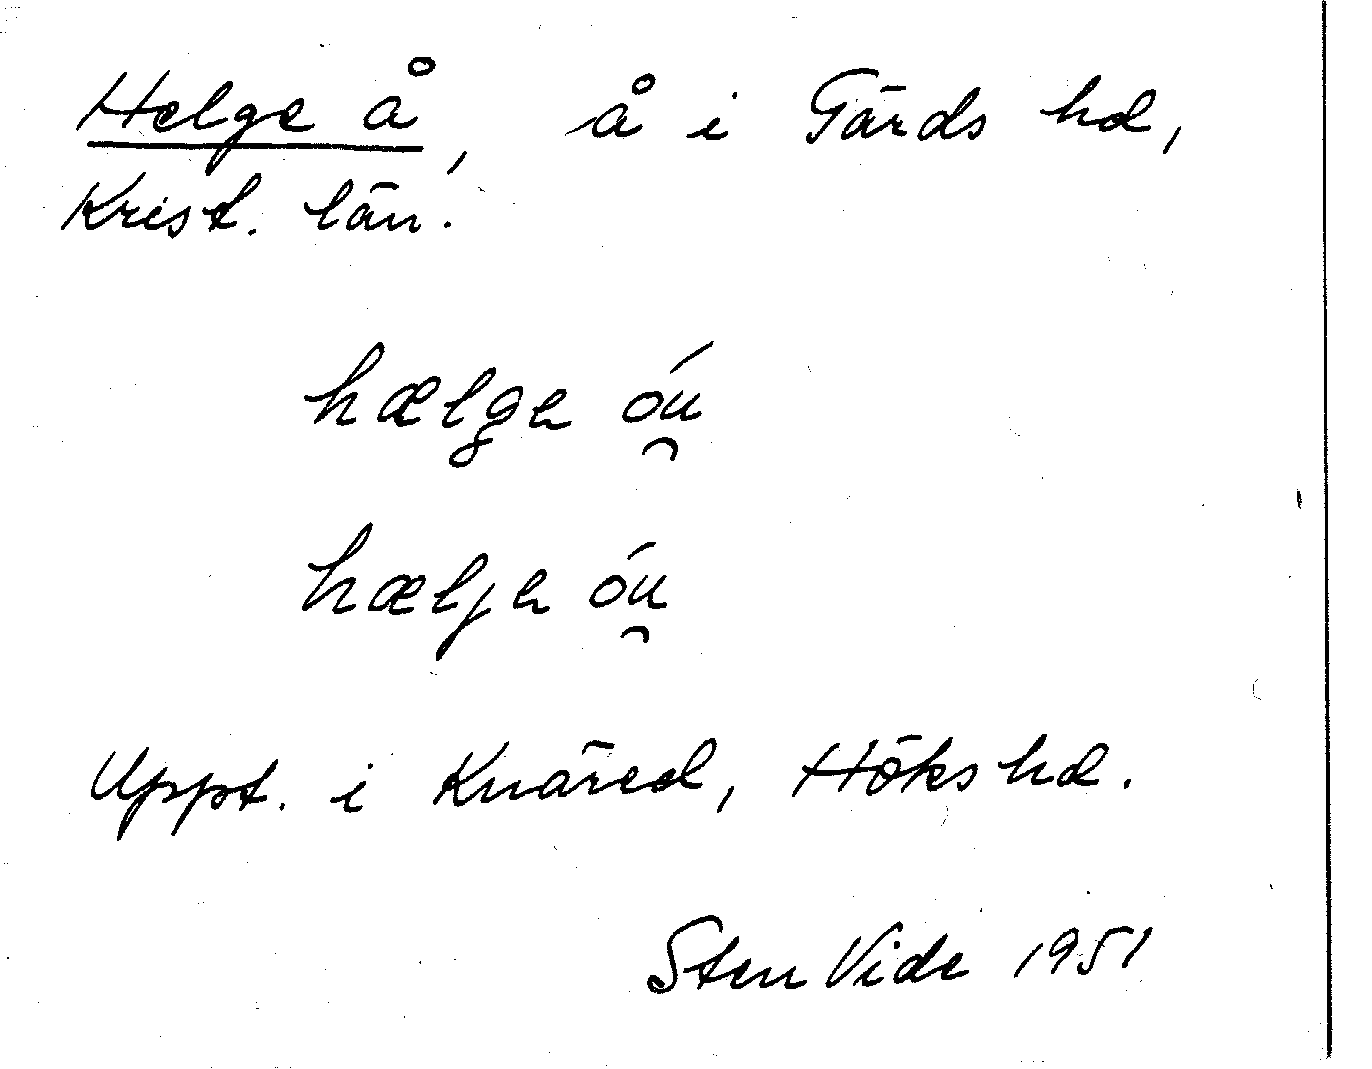 Helge å, å i Gärds hd,
Krist. län.
hælgɘ óu̯
hæljɘ óu̯
Uppt. i Knäred, Höks hd.
Sten Vide 1951